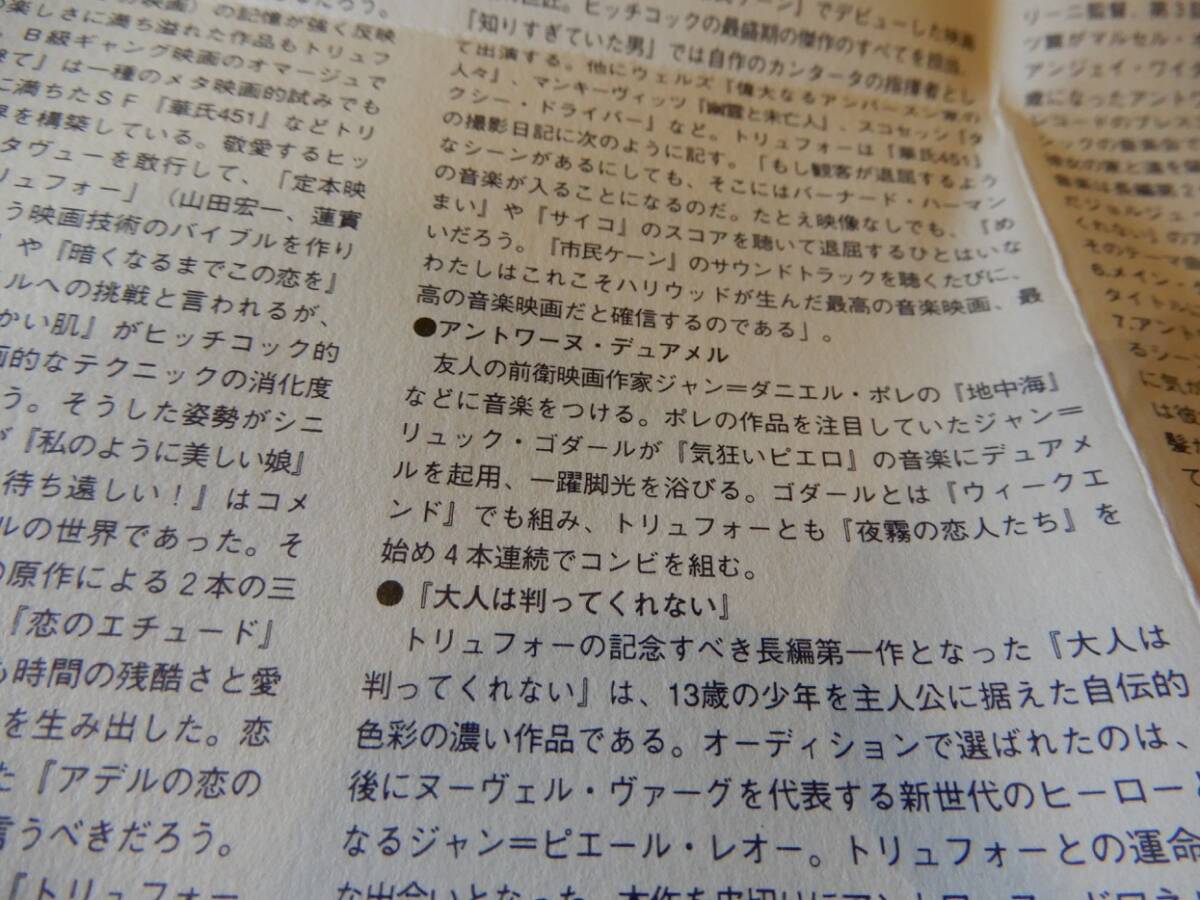 映画)の記憶が強く反映
楽しさに満ち溢れた作品もトリュフ
B級ギャング映画のオマージュで
は一種のメタ映画的試みでも
に満ちたSF『華氏451』などトリ
界を構築している。敬愛するヒッ
タヴューを敢行して、「定本映
リュフォー」(山田宏一、蓮實
う映画技術のバイブルを作り
や『暗くなるまでこの恋を』
ルへの挑戦と言われるが、
かい肌』がヒッチコック的
画的なテクニックの消化度
う。そうした姿勢がシニ
『私のように美しい娘』
待ち遠しい!』はコメ
ルの世界であった。そ
の原作による2本の三
『恋のエチュード』
も時間の残酷さと愛
を生み出した。恋
た『アデルの恋の
言うべきだろう。
『トリュフォー
でデビューした映画
巨匠。ヒッチコックの最盛期の傑作のすべてを担当、
『知りすぎていた男』では自作のカンタータの指揮者とし
て出演する。他にウェルズ『偉大なるアンバースン家の
人々』、マンキーヴィッツ『幽霊と未亡人』、スコセッシ『タ
クシー・ドライバー』など。トリュフォーは『華氏451』
の撮影日記に次のように記す。「もし観客が退屈するよう
なシーンがあるにしても、そこにはバーナード・ハーマン
の音楽が入ることになるのだ。たとえ映像なしでも、『め
まい』や『サイコ』のスコアを聴いて退屈するひとはいな
いだろう。『市民ケーン』のサウンドトラックを聴くたびに、
わたしはこれこそハリウッドが生んだ最高の音楽映画、最
高の音楽映画だと確信するのである」。
●アントワーヌ・デュアメル
友人の前衛映画作家ジャン=ダニエル・ポレの『地中海』
などに音楽をつける。ポレの作品を注目していたジャン=
リュック・ゴダールが『気狂いピエロ』の音楽にデュアメ
ルを起用、一躍脚光を浴びる。ゴダールとは『ウィークエ
ンド』でも組み、トリュフォーとも『夜霧の恋人たち』を
始め4本連続でコンビを組む。
●『大人は判ってくれない』
トリュフォーの記念すべき長編第一作となった『大人は
判ってくれない』は、13歳の少年を主人公に据えた自伝的
色彩の濃い作品である。オーディションで選ばれたのは、
後にヌーヴェル・ヴァーグを代表する新世代のヒーローと
なるジャン=ピエール・レオー。トリュフォーとの運命
な出会いとなった
リーニ監督、第3
ツ賞がマルセル・
アンジェイ・ワイダ
歳になったアント
レコードのプレス
シックの音楽会で
たジョルジュ
くれない』の
そのテーマ曲
6.メイン・
タイトル
7.アント
るシー
に気が
は彼
髪
て